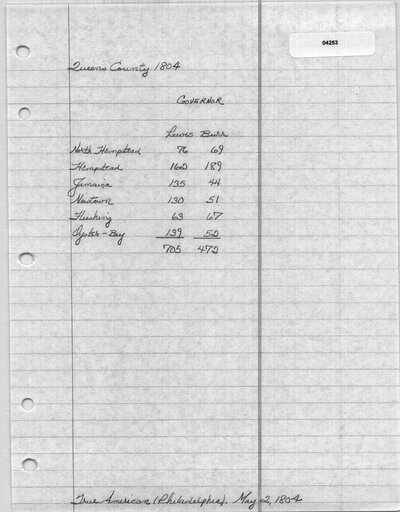 04253
Queens County 1804
GOVERNOR
Lewis Burr
North Hempstead 76 69
Hempstead 162 189
Jamaica 135 44
Newtown 130 51
Flushing 63 67
Oyster-Bay 139 52
705 472
True American (Philadelphia). May 2, 1804